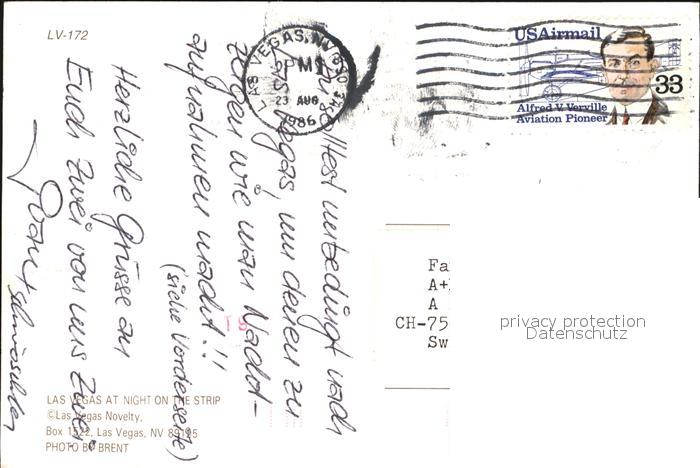 LV-172
LAS VEGAS, NV
PM
23 AUG
1986
USAirmail
33
Alfred V. Verville
Aviation Pioneer
Du solltest unbedingt nach
Las Vegas, um denen zu
zeigen wie man Nacht-
aufnahmen macht!!
(siehe Vorderseite)
Herzliche Grüsse an
Euch zwei von uns zwei
Fa
A+
A
CH-75
Sw
privacy protection
Datenschutz
LAS VEGAS AT NIGHT ON THE STRIP
©Las Vegas Novelty,
Box 1522, Las Vegas, NV 89125
PHOTO BY BRENT